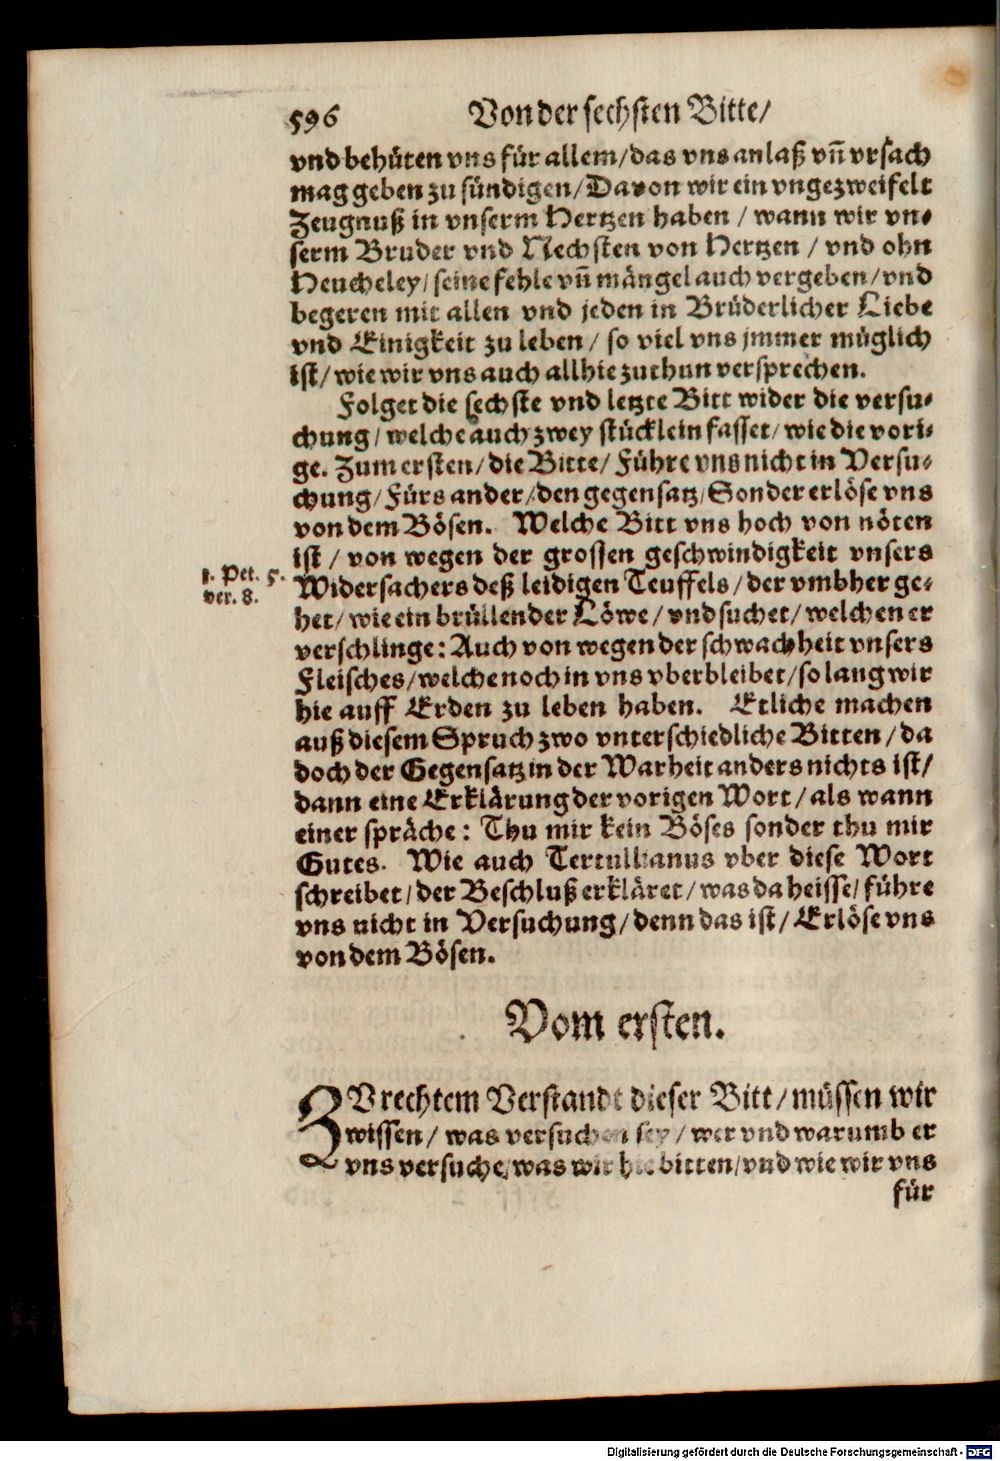 596 Von der sechsten Bitte/
vnd behüten vns für allem/das vns anlaß vn̄ vrsach
mag geben zu sündigen/Davon wir ein vngezweifelt
Zeugnuß in vnserm Hertzen haben / wann wir vn-
serm Bruder vnd Nechsten von Hertzen / vnd ohn
Heucheley/seine fehle vn̄ mängel auch vergeben/vnd
begeren mit allen vnd jeden in Brüderlicher Liebe
vnd Einigkeit zu leben / so viel vns jmmer müglich
ist/wie wir vns auch allhie zuthun versprechen.
Folget die sechste vnd letzte Bitt wider die versu-
chung/welche auch zwey stücklein fasset/wie die vori-
ge. Zum ersten/die Bitte/Führe vns nicht in Versu-
chung/Fürs ander/den gegensatz/Sonder erlöse vns
von dem Bösen. Welche Bitt vns hoch von nöten
ist / von wegen der grossen geschwindigkeit vnsers
1. Pet. 5.
ver. 8.
Widersachers deß leidigen Teuffels/der vmbher ge-
het/wie ein brüllender Löwe/vnd suchet/welchen er
verschlinge: Auch von wegen der schwachheit vnsers
Fleisches/welche noch in vns vberbleibet/so lang wir
hie auff Erden zu leben haben. Etliche machen
auß diesem Spruch zwo vnterschiedliche Bitten/da
doch der Gegensatz in der Warheit anders nichts ist/
dann eine Erklärung der vorigen Wort/als wann
einer spräche: Thu mir kein Böses sonder thu mir
Gutes. Wie auch Tertullianus vber diese Wort
schreibet/der Beschluß erkläret/was da heisse/führe
vns nicht in Versuchung/denn das ist/Erlöse vns
von dem Bösen.
Vom ersten.
ZVrechtem Verstandt dieser Bitt/müssen wir
wissen/was versuchen sey/wer vnd warumb er
vns versuche/was wir hie bitten/vnd wie wir vns
für
Digitalisierung gefördert durch die Deutsche Forschungsgemeinschaft - DFG